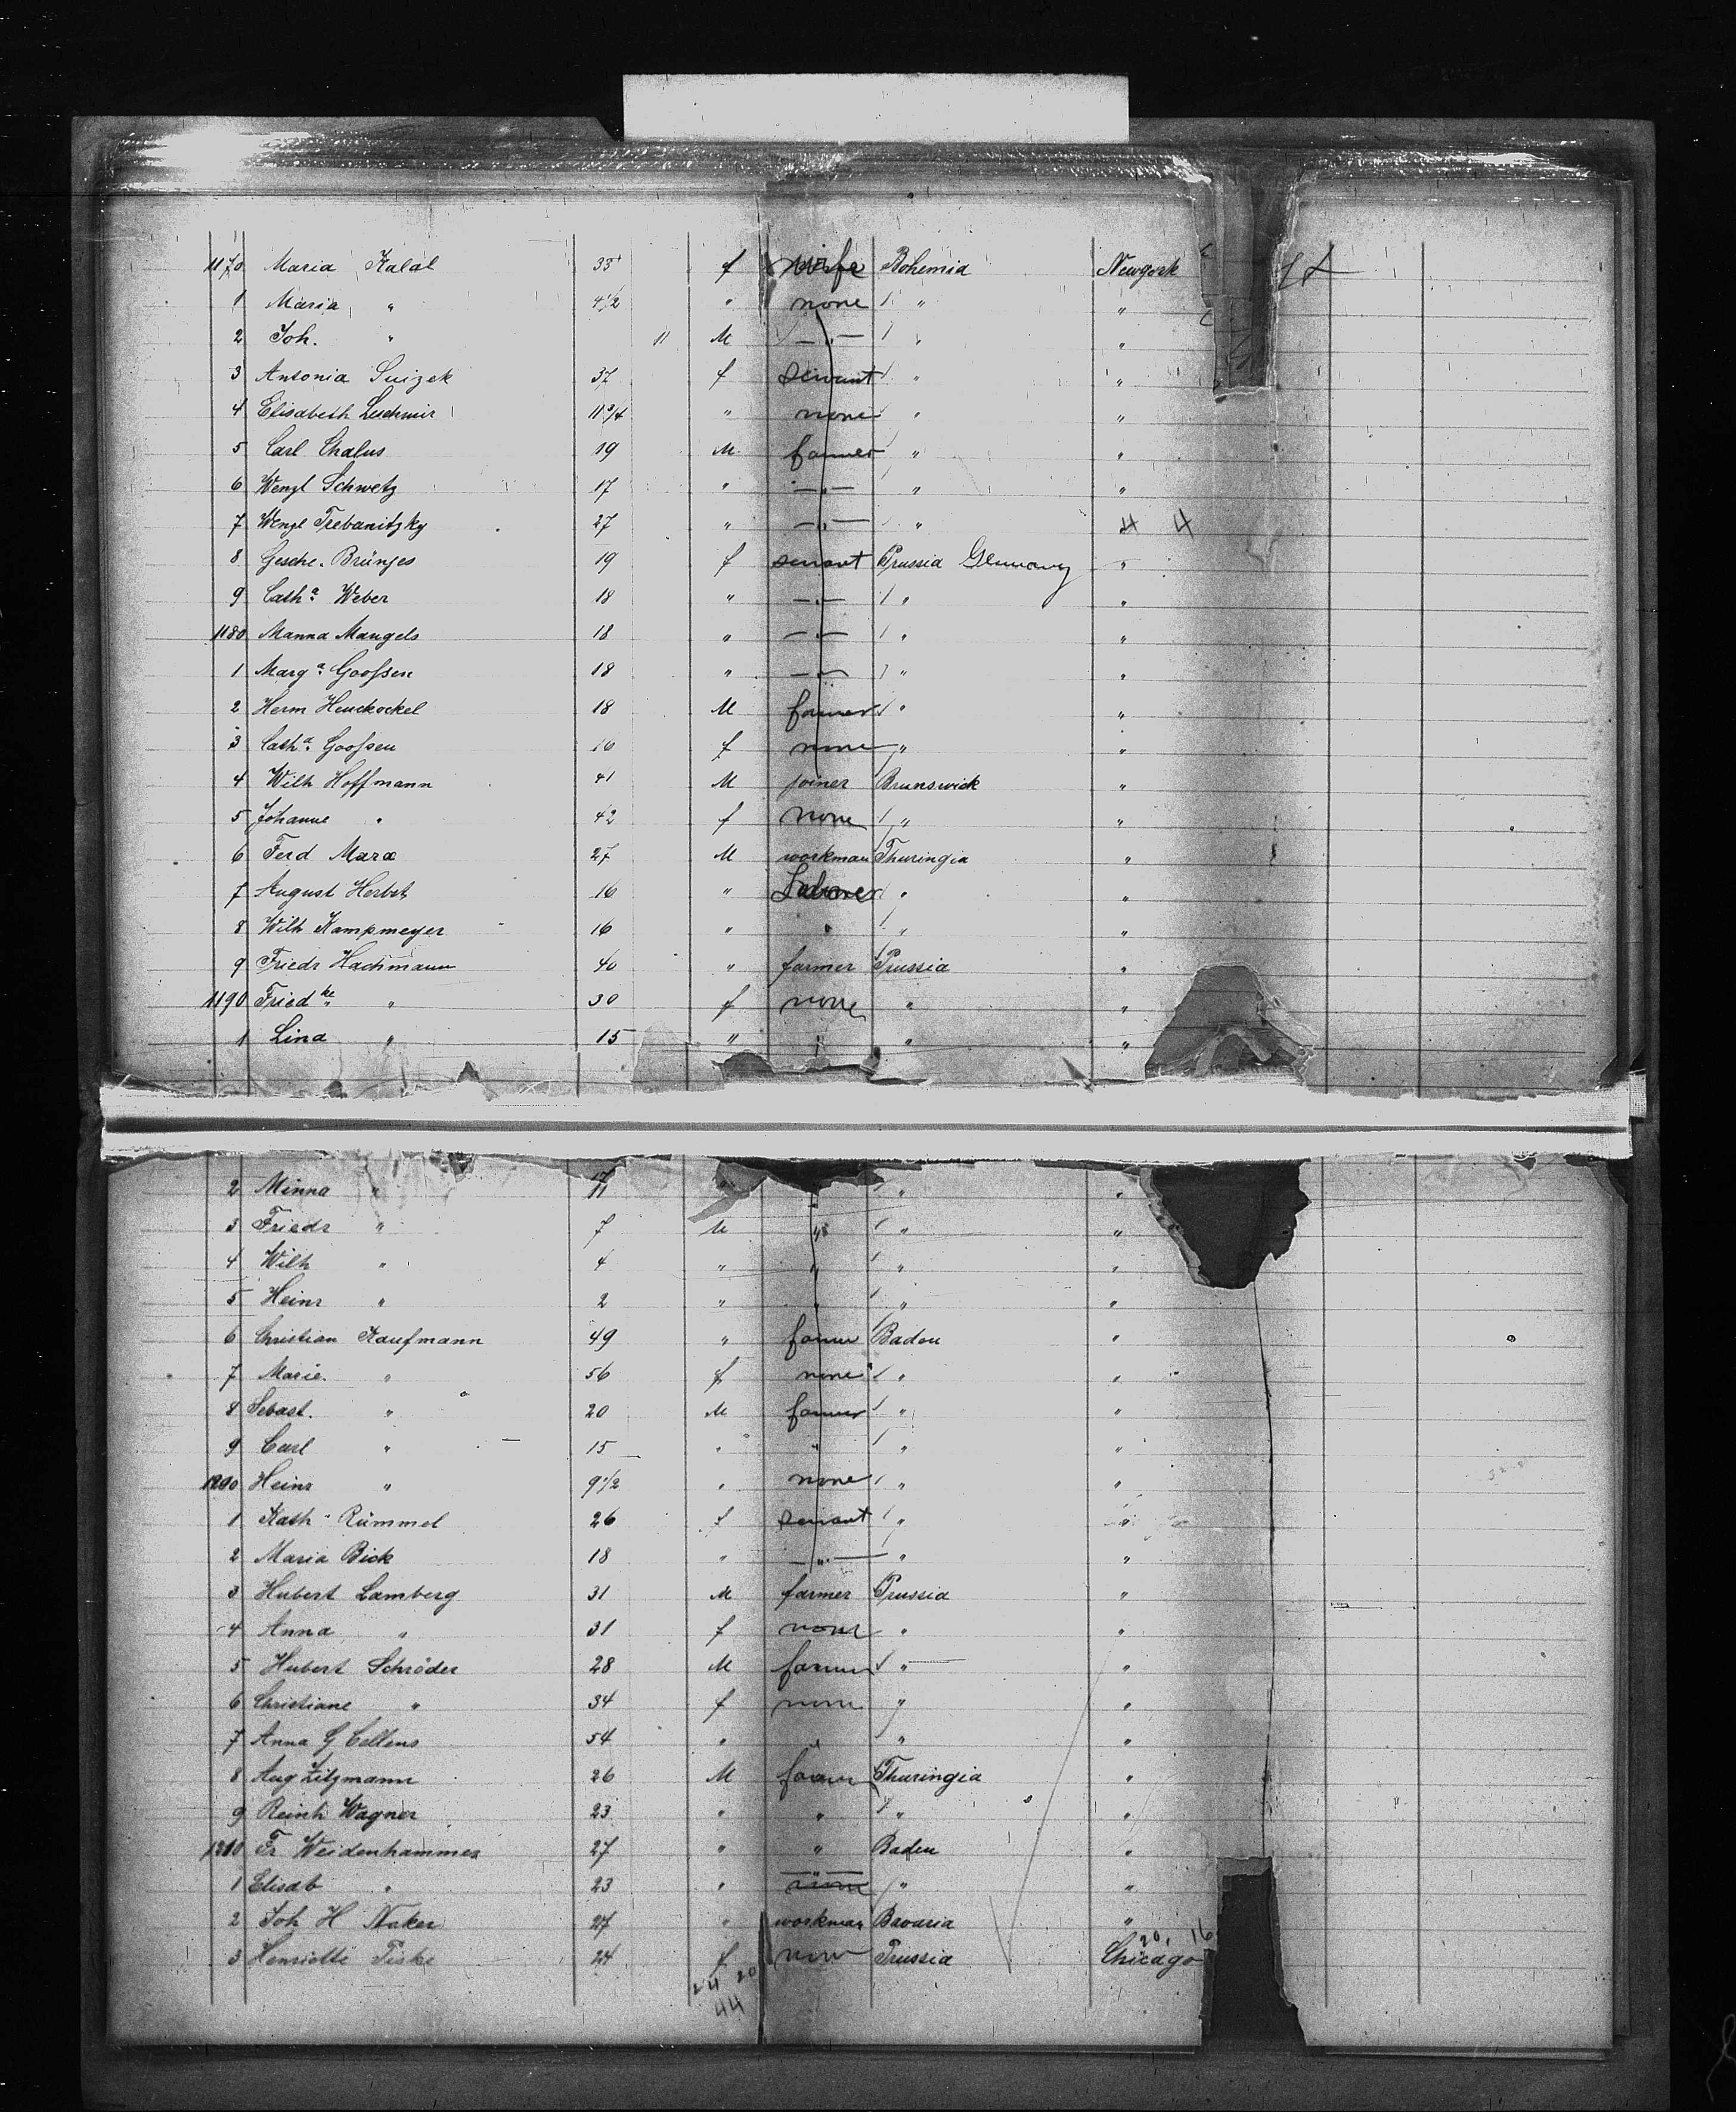 1170 Maria Kalal 33 f wife Bohemia Newyork
1 Maria " 4 1/2 " none " "
2 Joh. " 11 M — " — " "
3 Antonia 37 f servant " "
4 Elisabeth 11 3/4 " none " "
5 Carl Chalus 19 M farmer " "
6 Wenzl Schwetz 17 " — " — " "
7 Wenzl Trebanitzky 27 " — " — " 4 4
8 Gesche Brünjes 19 f servant Prussia Germany "
9 Cath.a Weber 18 " — " — " "
1180 Manna Mangels 18 " — " — " "
1 Marg.a Goossen 18 " — " — " "
2 Herm Henckockel 18 M farmer " "
3 Cath.a Goossen 16 f none " "
4 Wilh Hoffmann 41 M joiner Brunswick "
5 Johanne " 42 f none " "
6 Ferd Marx 27 M workman Thuringia "
7 August Herbst 16 " Laborer " "
8 Wilh Kampmeyer 16 " " " "
9 Friedr Hachmann 40 " farmer Prussia "
1190 Fried ke " 30 f none " "
1 Lina " 15 " " " "
2 Minna " 11 " " "
3 Friedr " 7 M " " "
4 Wilh " 4 " " " "
5 Heinr " 2 " " " "
6 Christian Kaufmann 49 " farmer Baden "
7 Marie " 56 f none " "
8 Sebast. " 20 M farmer " "
9 Carl " 15 " " " "
1200 Heinr " 9 1/2 " none " "
1 Kath Rümmel 26 f servant " "
2 Maria Bick 18 " — " — " "
3 Hubert Lamberg 31 M farmer Prussia "
4 Anna " 31 f none " "
5 Hubert Schröder 28 M farmer " "
6 Christiane " 34 f none " "
7 Anna G Cellens 54 " " " "
8 Aug Zitzmann 26 M farmer Thuringia "
9 Reinh Wagner 23 " " " "
1210 Fr Weidenhammer 27 " " Baden "
1 Elisab " 23 " none " "
2 Joh H Naker 27 " workman Bavaria "
20, 16
3 Henriette Tiske 24 f none Prussia Chicago
24 20
44